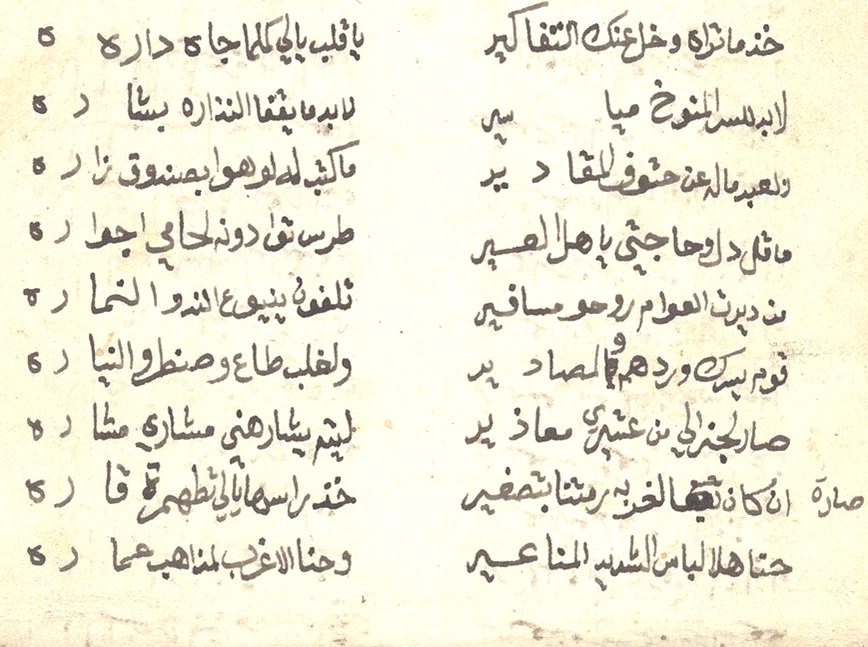 خذ ما تراه وخل عنك التفاكير يا قلب يالي كلما جاه داره ه
لابد للسر المنوخ ميا سير لابد ما يقفا النذاره بشا ره
ولعبد ماله عن حتوف المقا دير ما كتب له لو هوا بصندوق زا ره
ما قل دل وحاجتي ياهل العسير طرس توا دونه لحامي اجوا ره
من ديرت العوام روحو مسافير تلفون ينبوع الندو النما ره
قوم يسرك وردهم والمصاد ير ولغلب طاع وصنطر والنيا ره
صار لجنرالي من عشيري معاذ ير ليتم يشار هني مشاري مشا ره
ان كان لغربه رمتنا بتصغير خذ براسها يالي تطهر قا ره
صارة
حنا هلا لباس الشديد المناعسير وحنا الا غرب لمذاهب عما ره